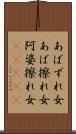 あばずれ女
あば擦れ女
阿婆擦れ女